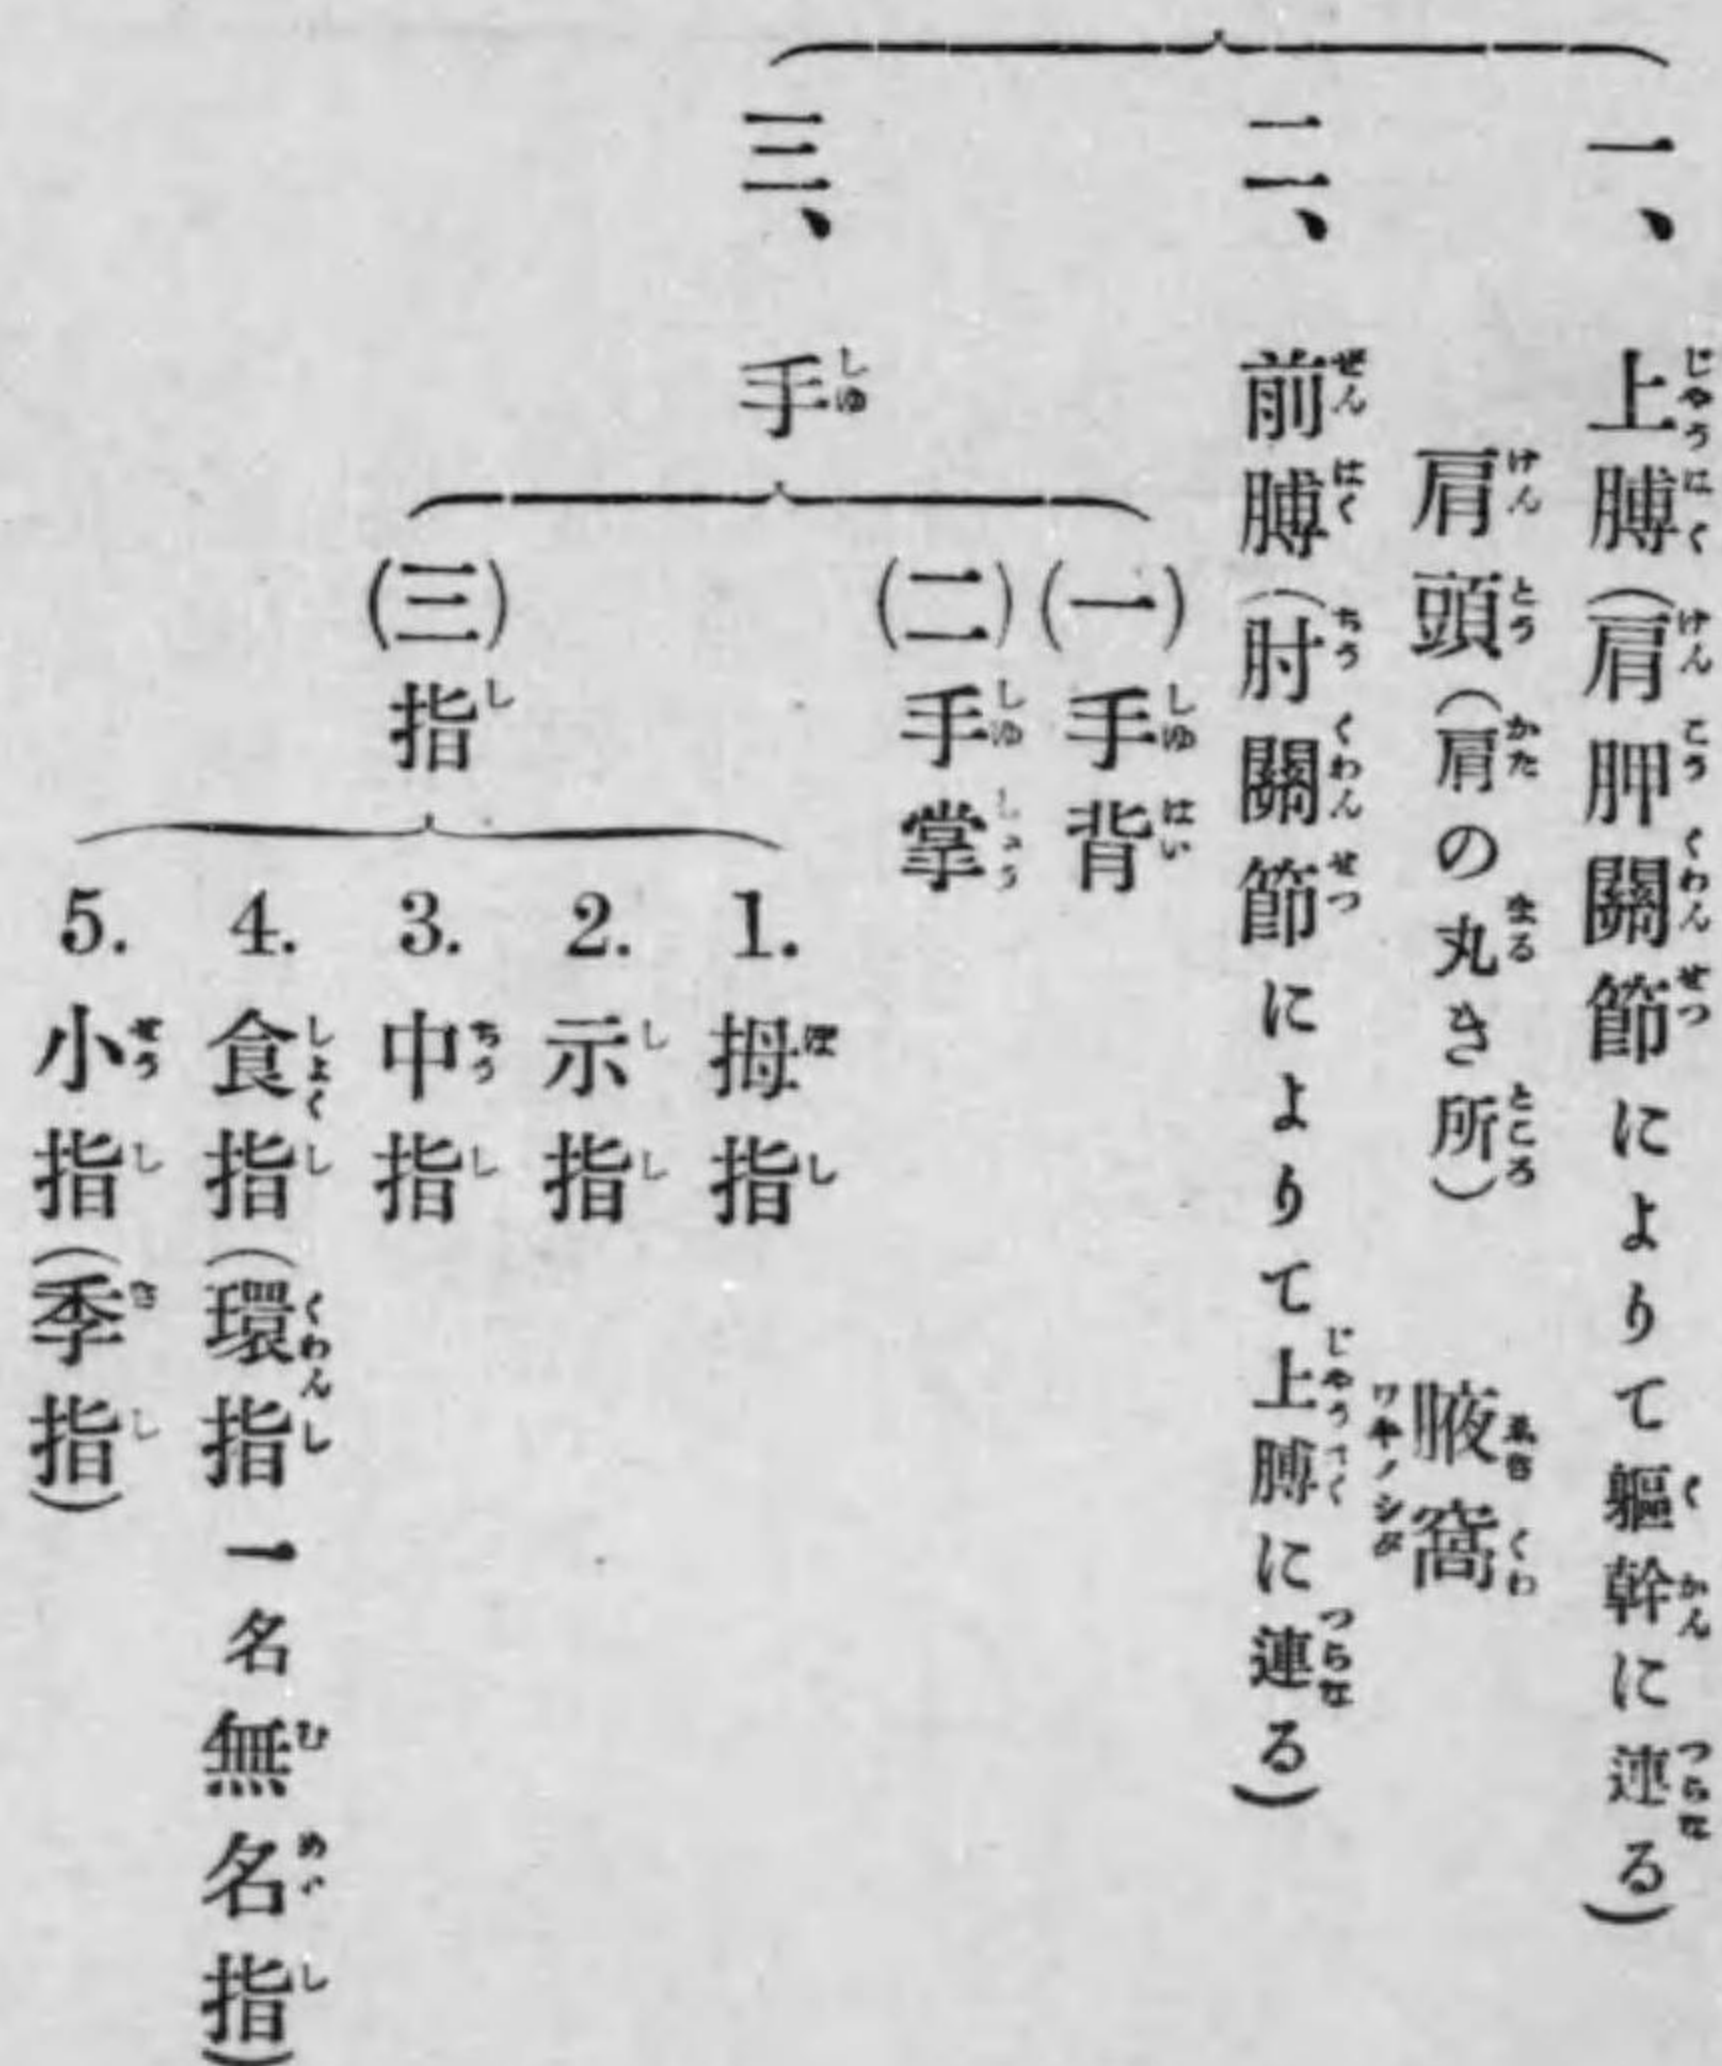 一、上膊(肩胛關節によりて軀幹に連る)
肩頭(肩の丸き所)　腋窩
二、前膊(肘關節によりて上膊に連る)
三、手
(一)手背
(二)手掌
(三)指
1. 拇指
2. 示指
3. 中指
4. 食指(環指一名無名指)
5. 小指(季指)